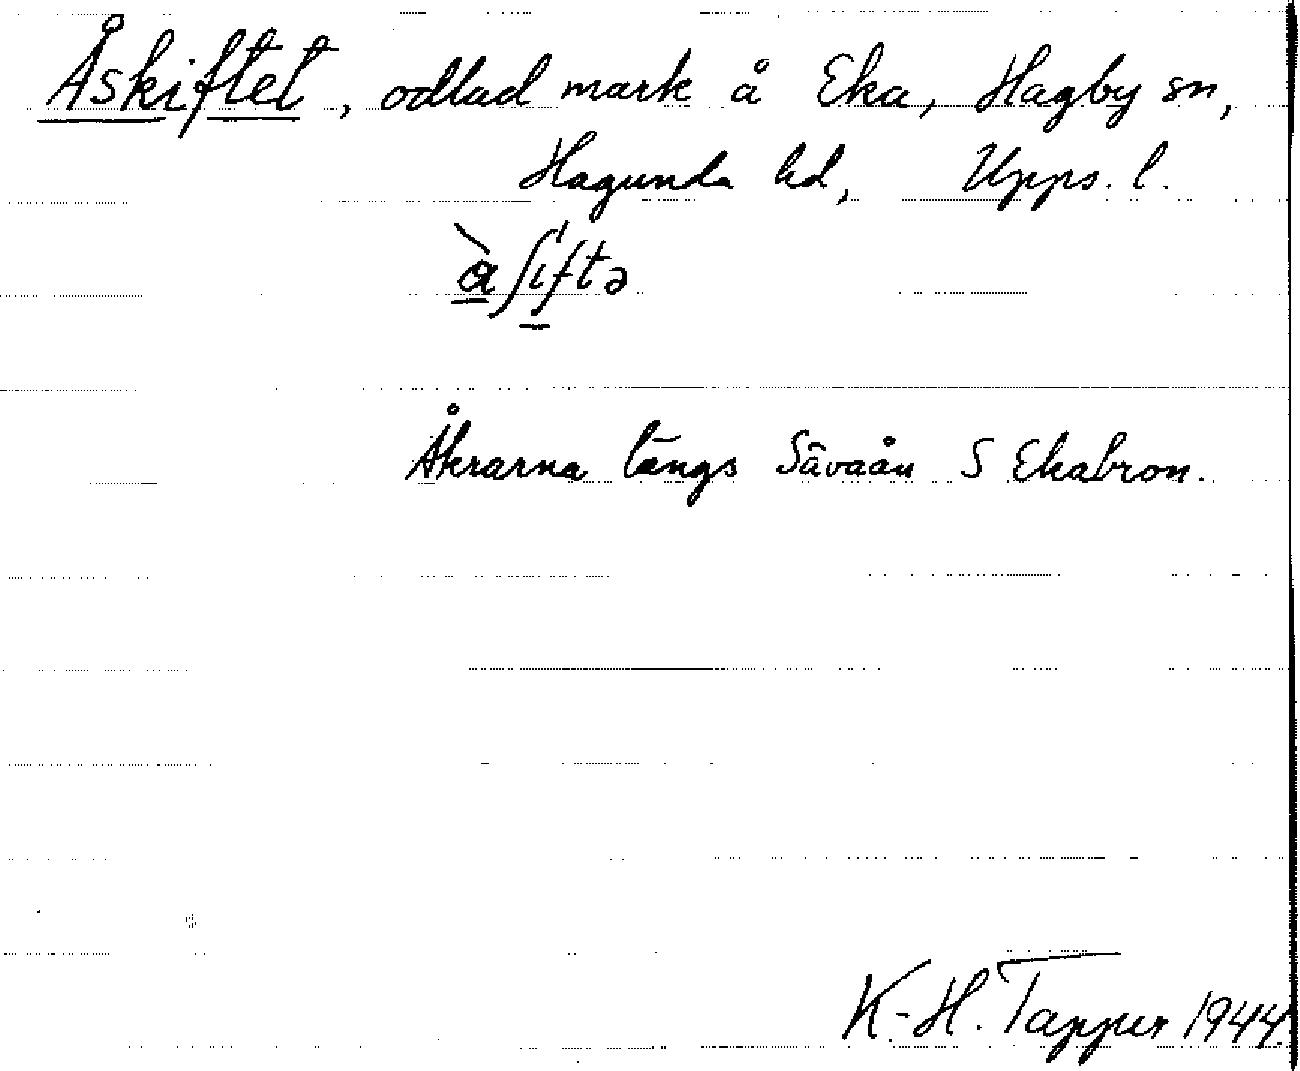 Åskiftet, odlad mark å Eka, Hagby sn,
Hagunda hd, Upps. l.
Åkrarna längs Sävaån S Ekabron.
K.-H. Tapper 1944.